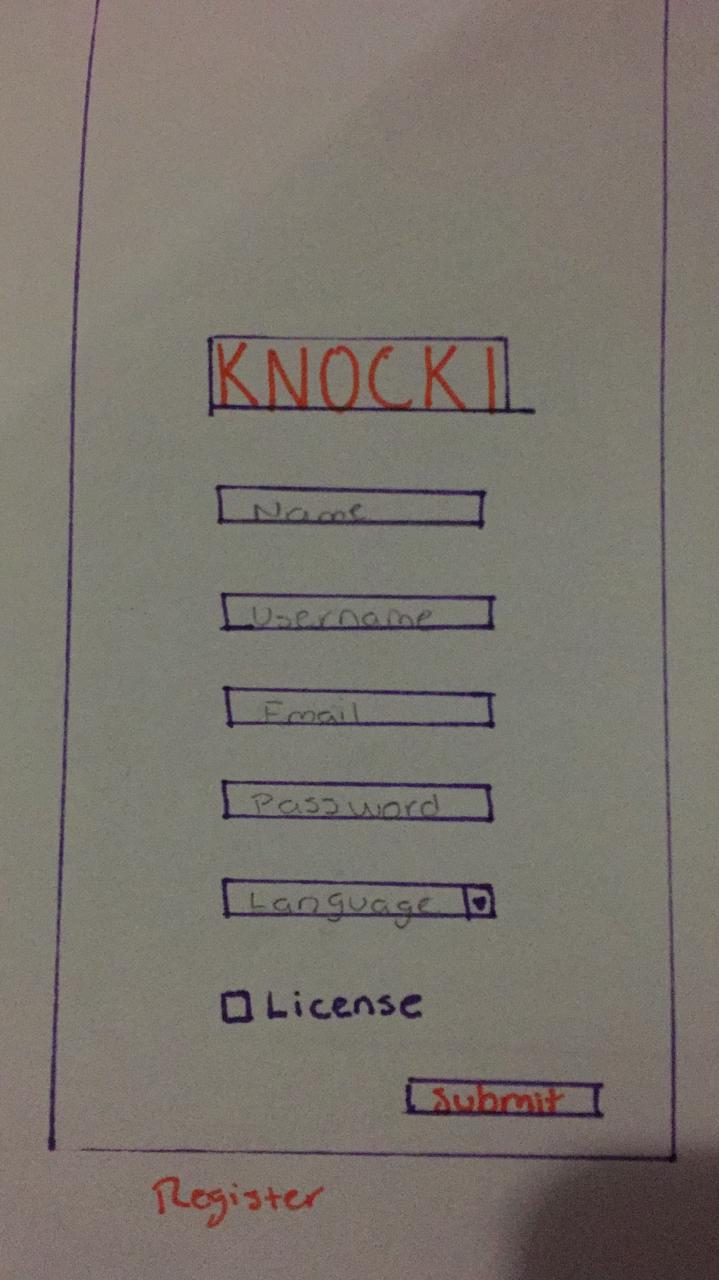 KNOCKI
Name
Username
Email
Password
Language
License
Submit
Register